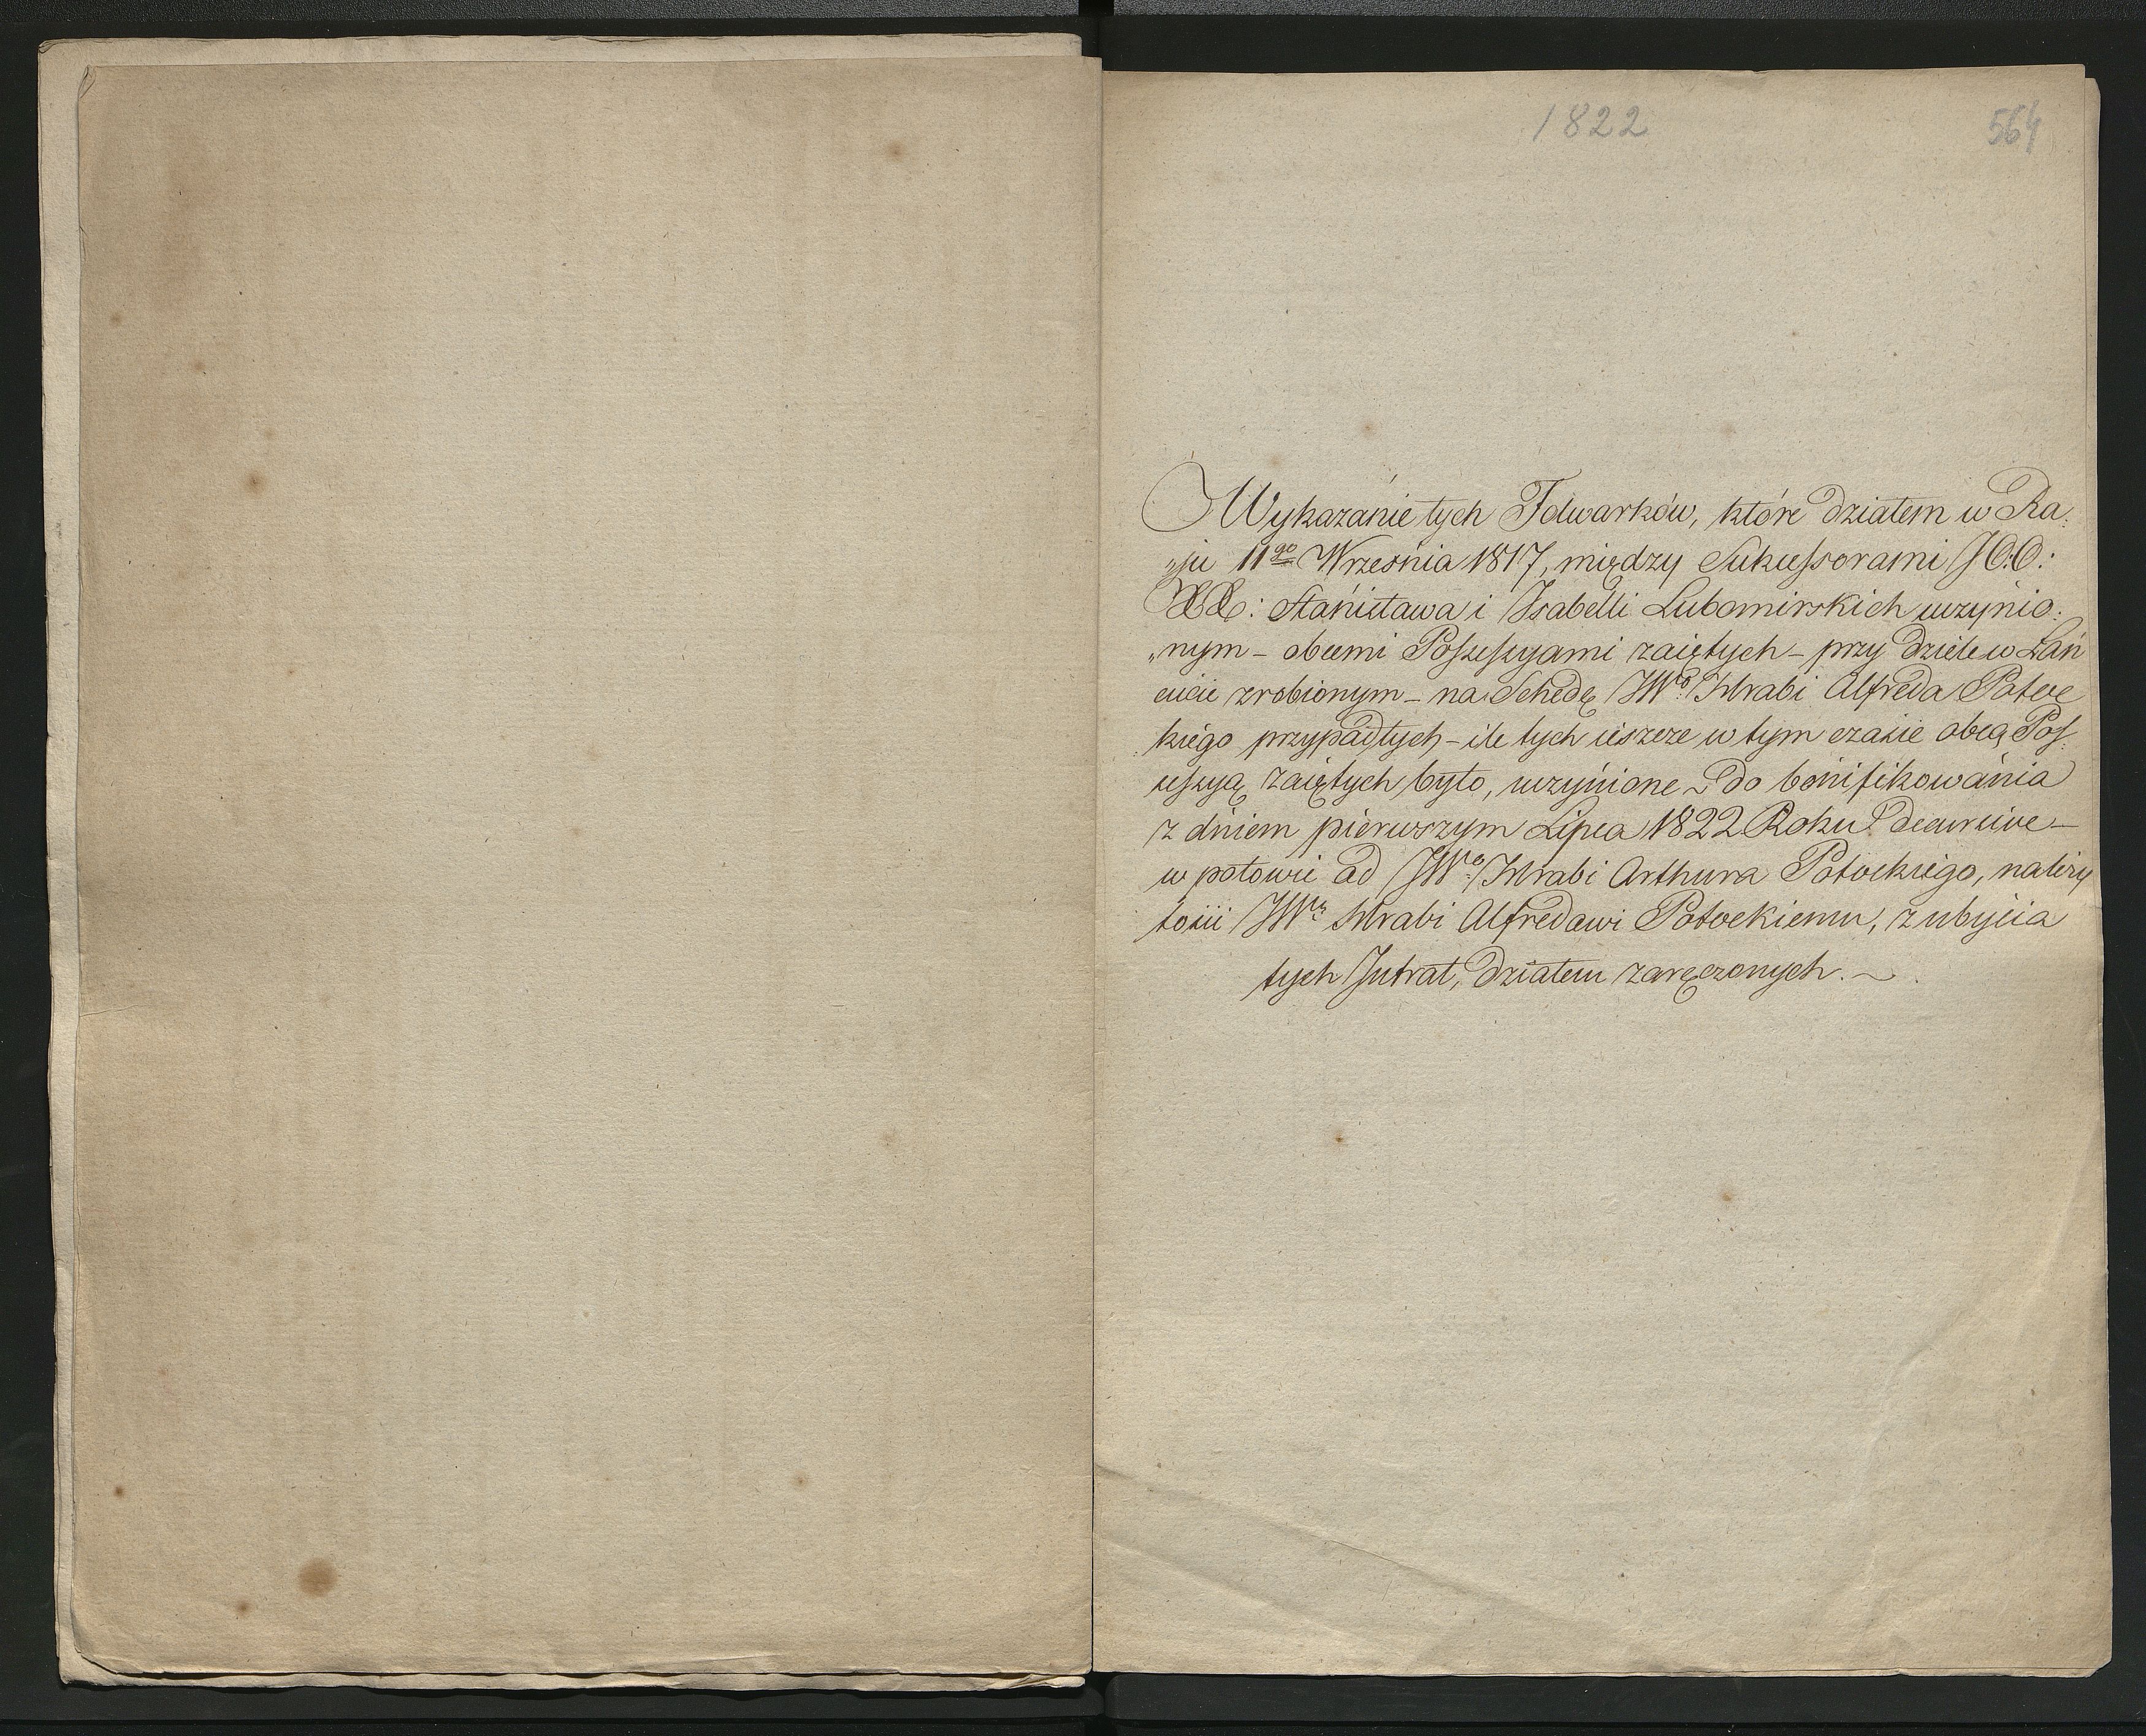 1822
564
Wykazanie tych Folwarków, które działem w Ra:
„ju 11go Września 1817, między Sukcessorami JO:O:
XX: Stanisława i Isabelli Lubomirskich uczynio:
„nym – obcemi Possessyami zaiętych – przy dziele w Łań
cucie zrobionym – na Schedę JWo Hrabi Alfreda Potoc
kiego przypadłych – ile tych ieszcze w tym czasie obcą Pos:
sessyą zaiętych było, uczynione – do bonifikowania
z dniem pierwszym Lipca 1822 Roku decursive –
w połowie od JWo Hrabi Arthura Potockiego, należy
tości JWu Hrabi Alfredowi Potockiemu, z ubycia
tych Intrat, działem zaręczonych. ~